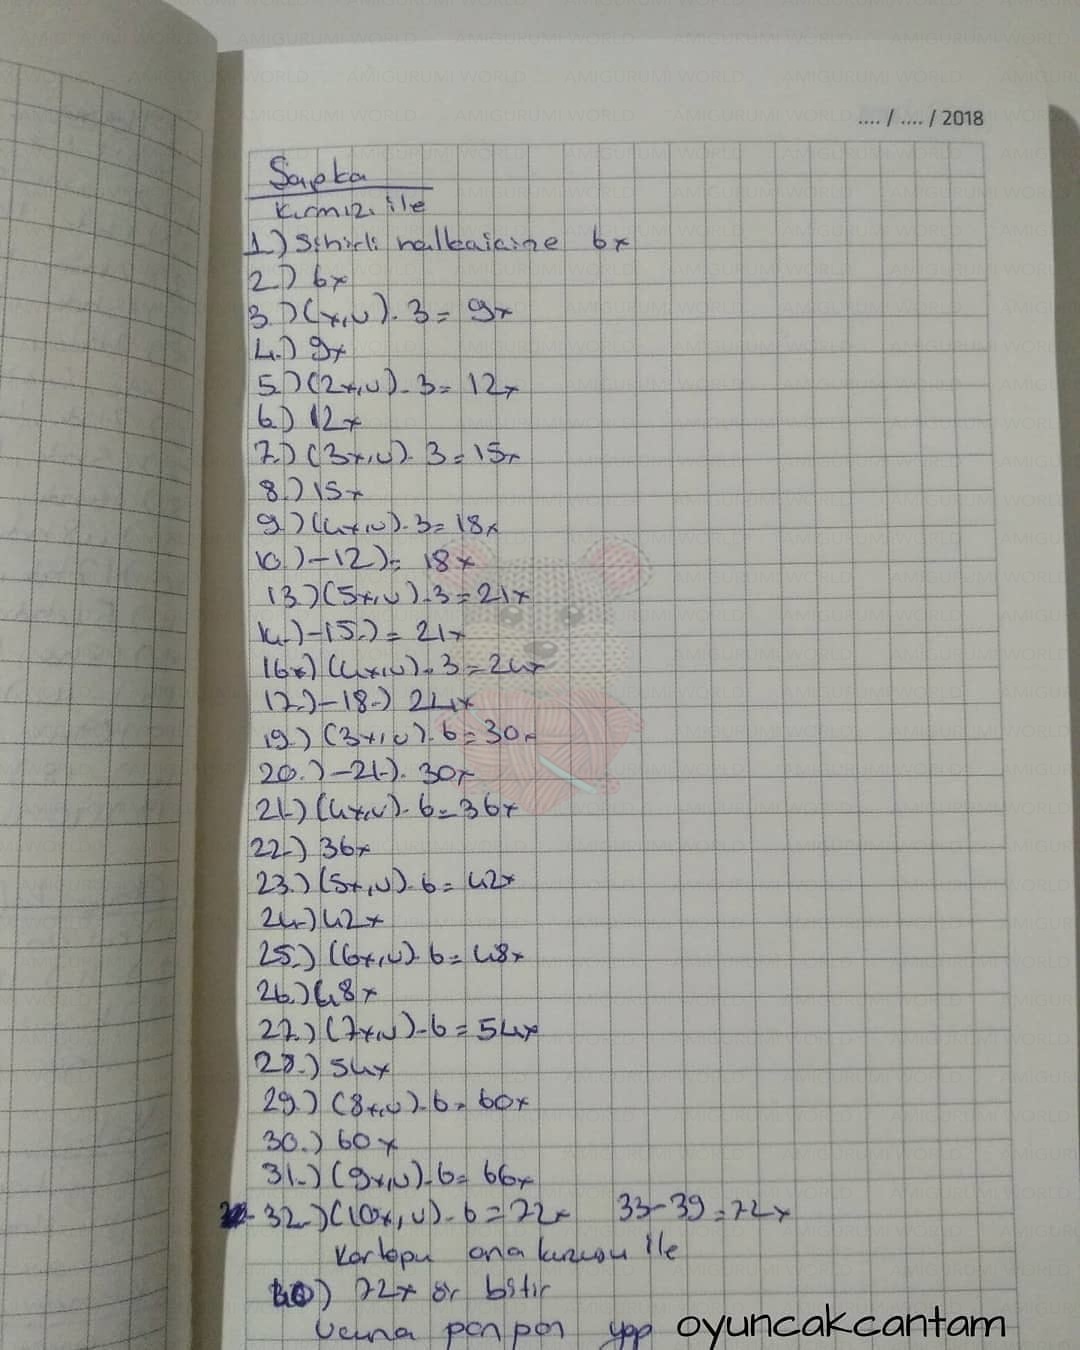 .... / .... / 2018
Şapka
Kırmızı ile
1.) Sihirli halka içine 6x
2.) 6x
3.) (x,v). 3 = 9x
4.) 9x
5.) (2x,v). 3 = 12x
6.) 12x
7.) (3x,v). 3 = 15x
8.) 15x
9.) (4x,v). 3 = 18x
10.) - 12) = 18x
13.) (5x,v). 3 = 21x
14.) - 15.) = 21x
16x) (4x,v). 3 = 24x
17.) - 18.) 24x
19.) (3x,v). 6 = 30x
20.) - 21.). 30x
21.) (4x,v). 6 = 36x
22.) 36x
23.) (5x,v). 6 = 42x
24.) 42x
25.) (6x,v). 6 = 48x
26.) 48x
27.) (7x,v). 6 = 54x
28.) 54x
29.) (8x,v). 6 = 60x
30.) 60x
31.) (9x,v). 6 = 66x
32.) (10x,v). 6 = 72x 33-39 = 72x
Kartopu ana kuzusu ile
40) 72x ör bitir
Ucuna ponpon yap
oyuncakcantam
AMIGURUMI WORLD